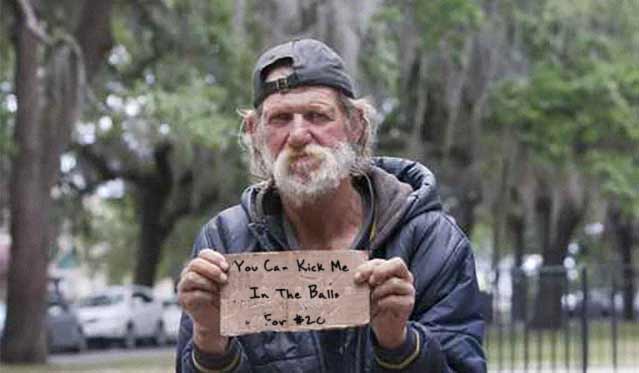 You Can Kick Me
In The Balls
For #20